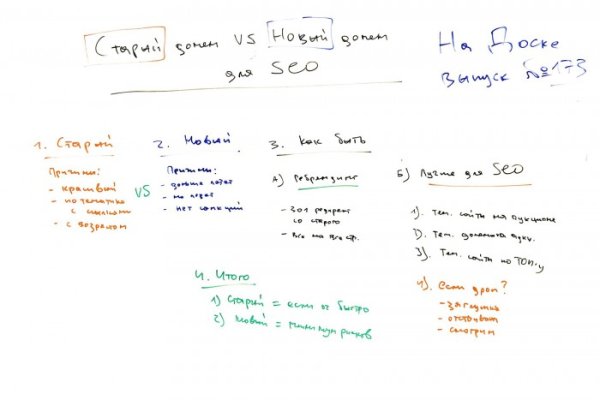 Старый домен VS Новый домен
для SEO
На Доске
Выпуск №173
1. Старый
Причины:
- красивый
- по тематике
с ссылками
- с возрастом
VS
2. Новый
Причины:
- дольше
- не
- нет санкций
3. Как быть
А) Ребрендинг
- 301 редирект
со старого
- Все на
Б) Лучше для SEO
1). Тем. сайты на аукционе
2). Тем. домены
3). Тем. сайты по ТОП-у
4). Если дроп?
- заглушка
-
- смотрим
4. Итого
1) Старый = если ок быстро
2) Новый = минимум рисков